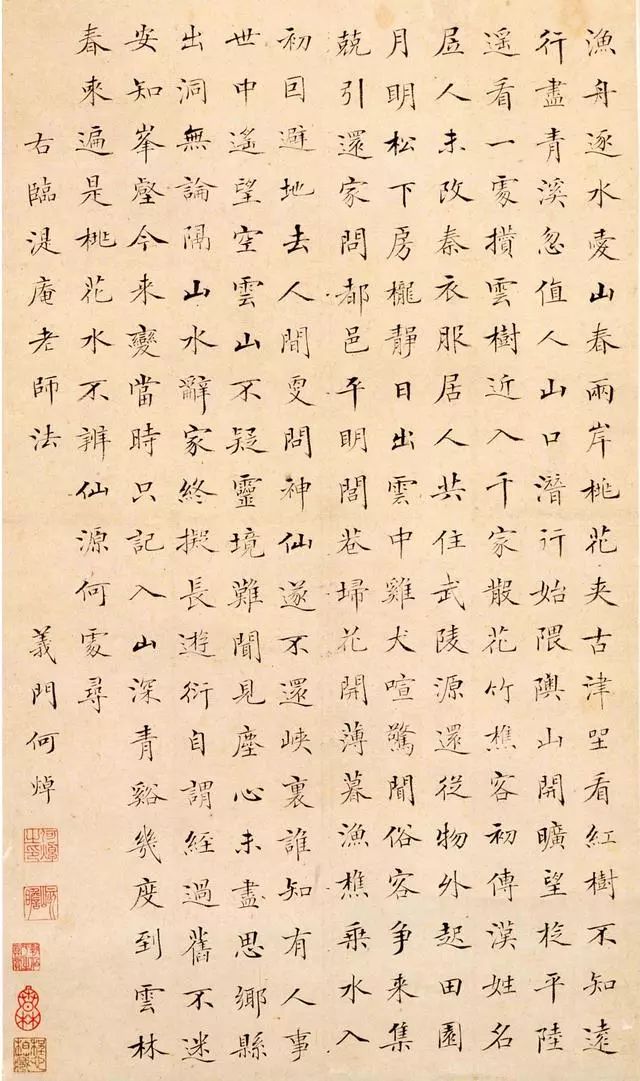 漁舟逐水愛山春兩岸桃花夾古津坐看紅樹不知遠
行盡青溪忽值人山口潛行始隈隩山開曠望旋平陸
遥看一處攢雲樹近入千家散花竹樵客初傳漢姓名
居人未改秦衣服居人共住武陵源還從物外起田園
月明松下房櫳靜日出雲中雞犬喧驚聞俗客争来集
競引還家問都邑平明閭巷埽花開薄暮漁樵乘水入
初因避地去人間更問神仙遂不還峽裏誰知有人事
世中遙望空雲山不疑靈境難聞見塵心未盡思鄉縣
出洞無論隔山水辭家終擬長遊衍自謂經過舊不迷
安知峯壑今来變當時只記入山深青谿幾度到雲林
春來遍是桃花水不辨仙源何處尋
右臨湜庵老師法 義門何焯
何焯之印